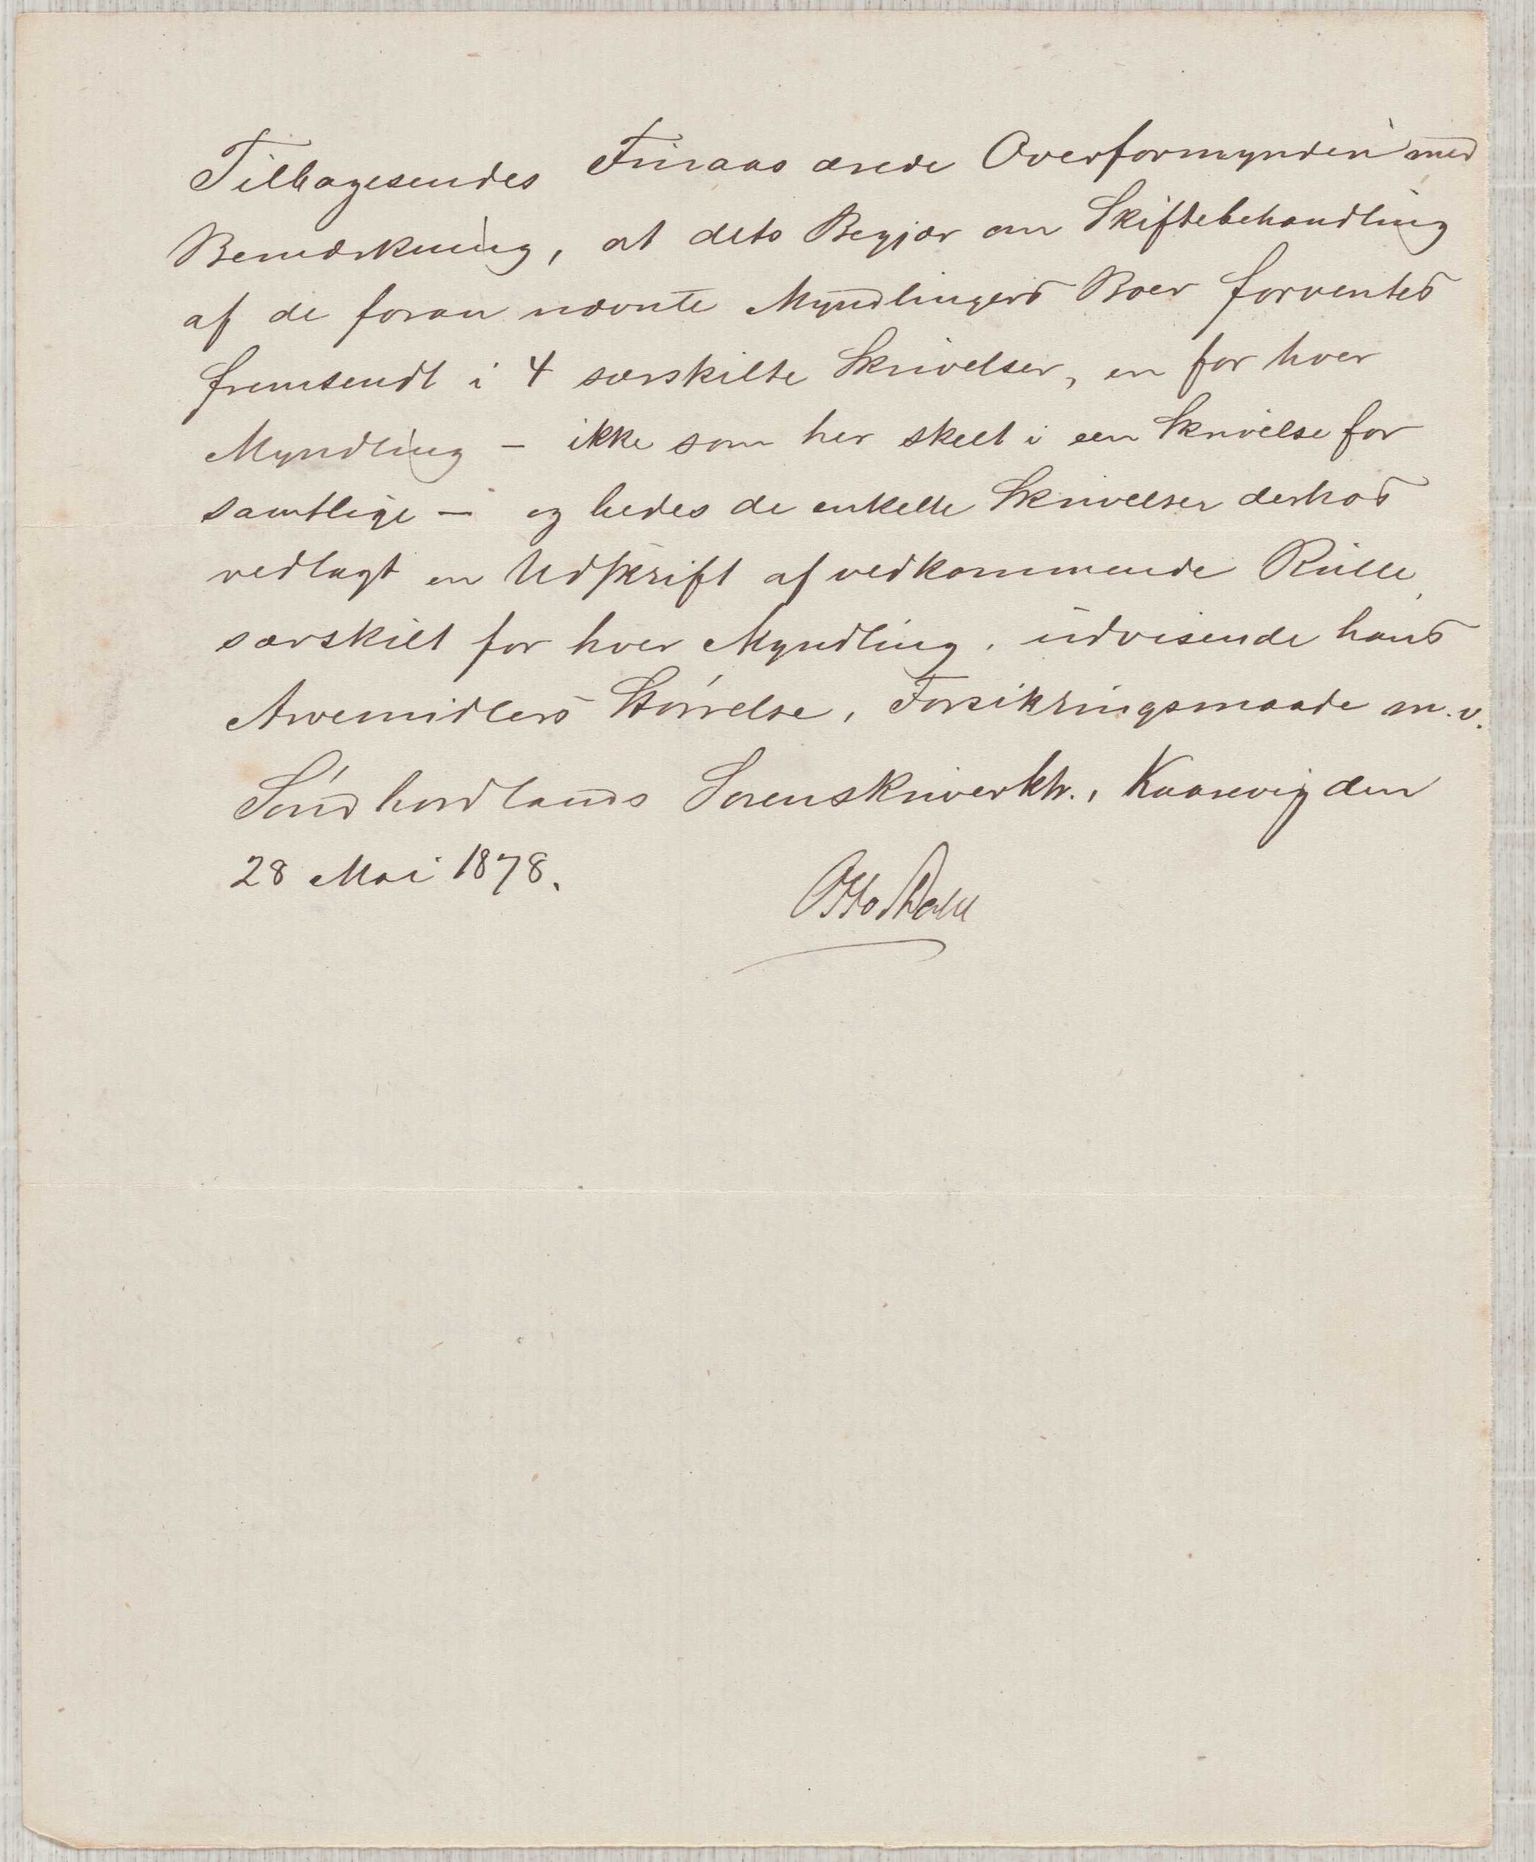 Tilbagesendes Finaas ærede Overformynderi med
Bemærkning, at dets Begjær om Skiftebehandling
af de foran nævnte Myndlingers Boer forventes
fremsendt i 4 særskilte Skrivelser, en for hver
Myndling – ikke som her skeet i een Skrivelse for
samtlige – og bedes de enkelte Skrivelser derhos
vedlagt en Udskrift af vedkommende Rulle,
særskilt for hver Myndling, udvisende hans
Arvemidlers Størrelse, Forsikringsmaade m.v.
Søndhordlands Sorenskriverktr., Kaarevig den
28 Mai 1878.
Otto Dahl